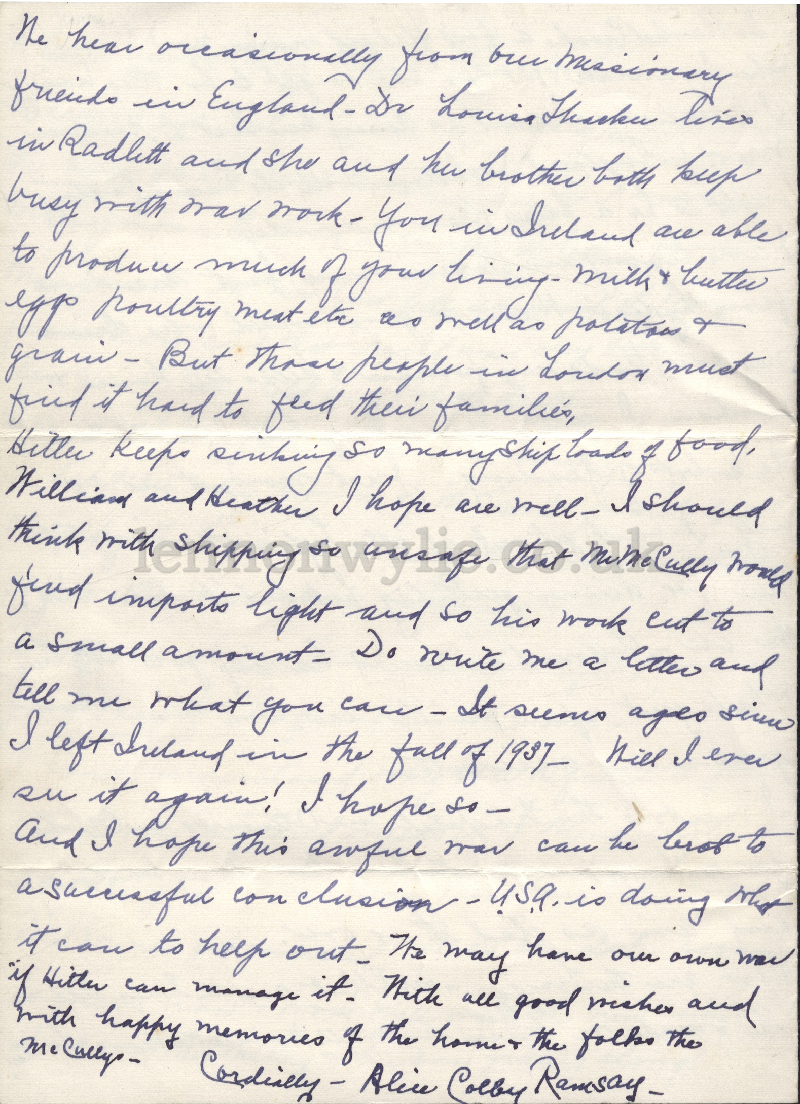 We hear occasionally from our missionary
friends in England - Dr Louisa Thacker lives
in Radlett and she and her brother both keep
busy with war work - You in Ireland are able
to produce much of your living - milk & butter
eggs poultry meat etc as well as potatoes &
grain - But those people in London must
find it hard to feed their families,
Hitler keeps sinking so many ship loads of food.
William and Heather I hope are well - I should
think with shipping so unsafe that Mr McCully would
find imports light and so his work cut to
a small amount - Do write me a letter and
tell me what you can - It seems ages since
I left Ireland in the fall of 1937 - Will I ever
see it again! I hope so -
And I hope this awful war can be brot to
a successful conclusion - U.S.A. is doing what
it can to help out - We may have our own war
if Hitler can manage it - With all good wishes and
with happy memories of the home & the folks the
McCullys -
Cordially - Alice Colby Ramsay -
lennonwylie.co.uk